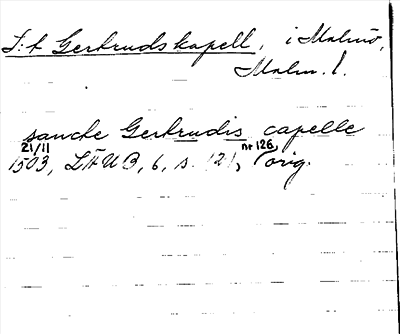 S:t Gertruds kapell, i Malmö,
Malm. l.
sancte Gertrudis capelle
21/11 nr 126,
1503, LÄUB, 6, s. 121, orig.